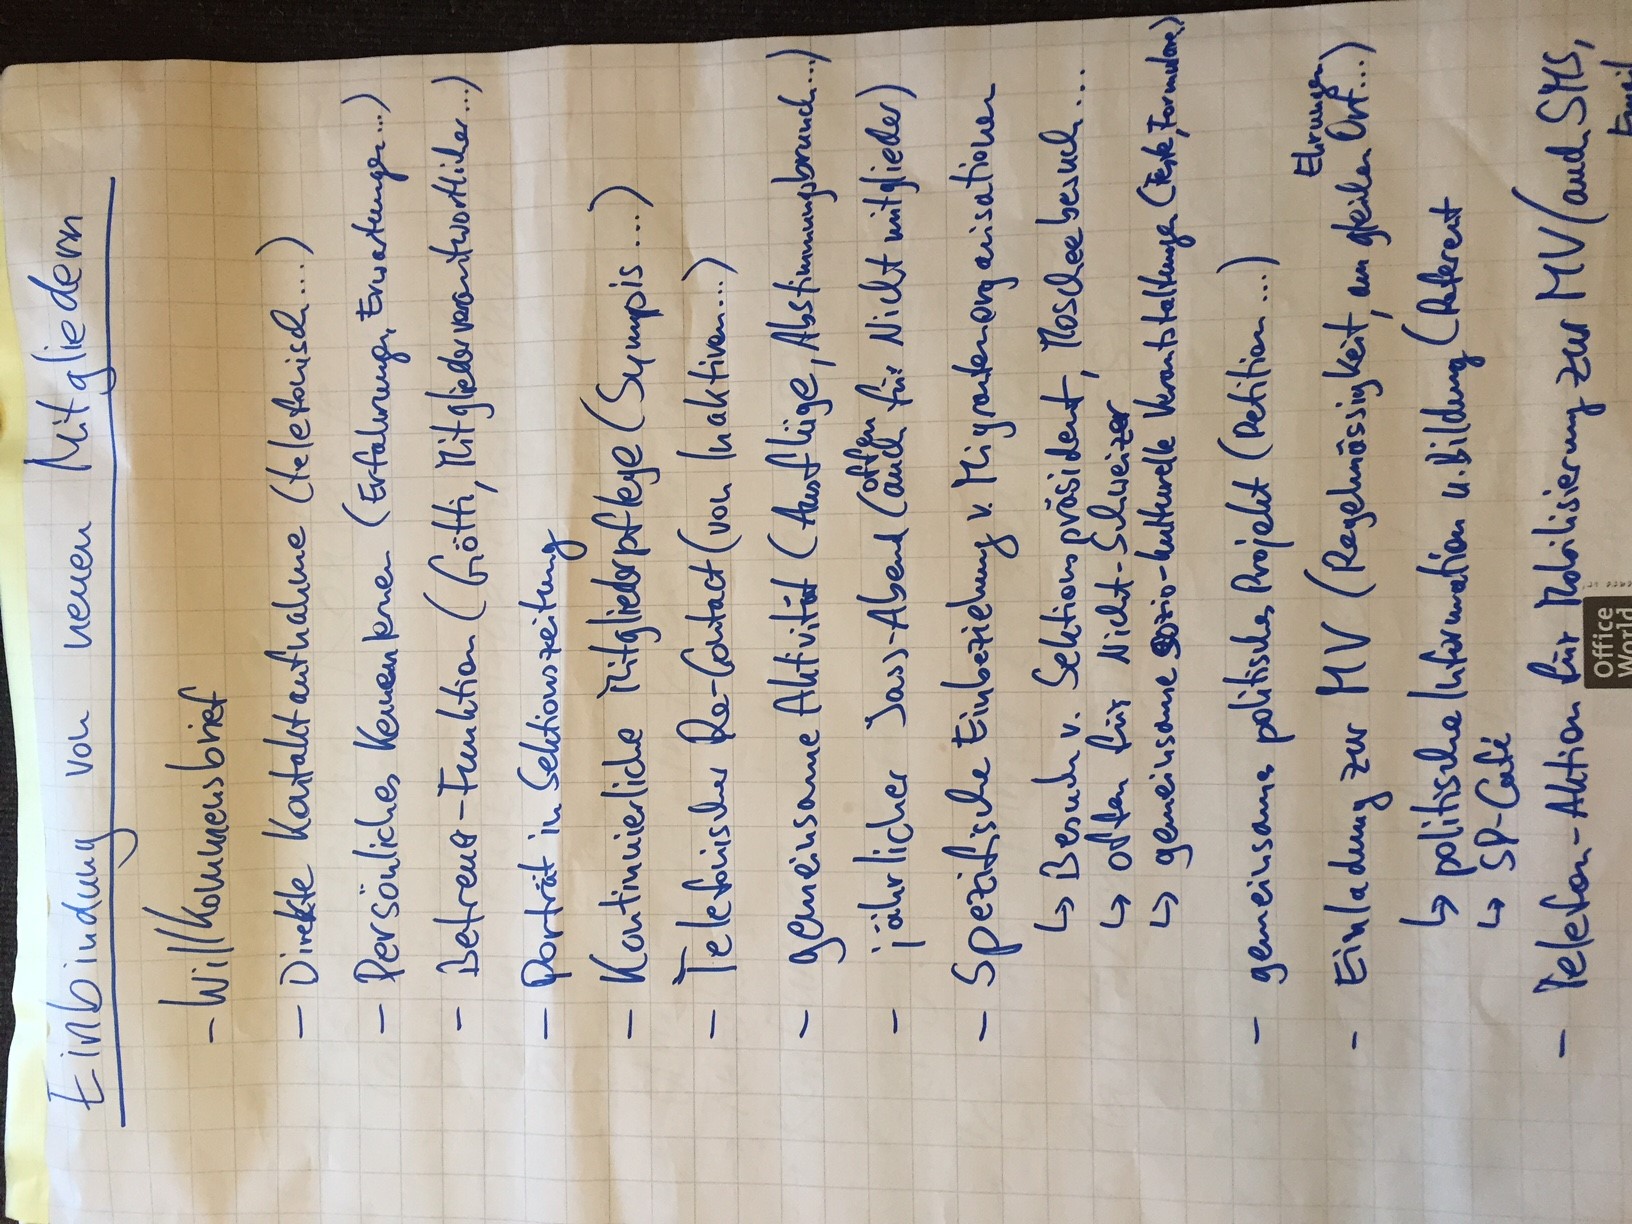 Einbindung von neuen Mitgliedern
- Willkommensbrief
- Direkte Kontaktaufnahme (telefonisch...)
- Persönliches Kennenlernen (Erfahrungen, Erwartungen...)
- Betreuer-Funktion (Götti, Mitgliederverantwortlicher...)
- Porträt in Sektionszeitung
- Kontinuierliche Mitgliederpflege (Sympis...)
- Telefonischer Re-Contact (von Inaktiven...)
- gemeinsame Aktivität (Ausflüge, Abstimmungsbrunch...)
- jährlicher Jass-Abend (auch offen für Nichtmitglieder)
- Spezifische Einbeziehung v. Migrantenorganisationen
↳ Besuch v. Sektionspräsident, Moscheebesuch...
↳ offen für Nicht-Schweizer
↳ gemeinsame sozio-kulturelle Veranstaltungen (Feste, Formulare)
- gemeinsams politisches Projekt (Petition...)
- Einladung zur MV (Regelmässigkeit, am gleichen Ort...) Ehrungen
↳ politische Information u. Bildung (Referent
↳ SP-Café
- Telefon-Aktion für Mobilisierung zur MV (auch SMS,
Email
Office
World